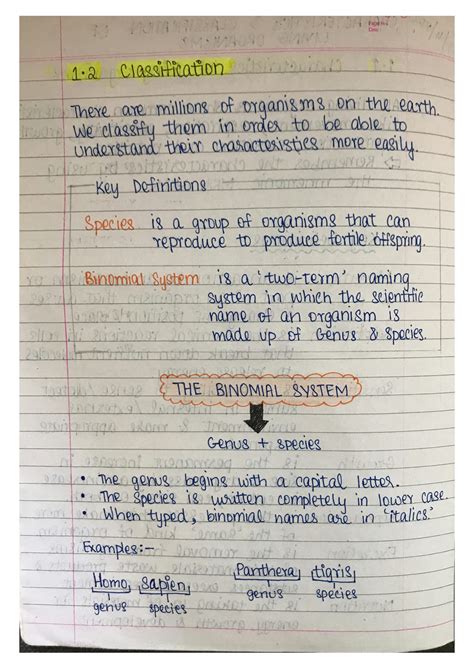 1.2 Classification
There are millions of organisms on the earth.
We classify them in order to be able to
understand their characteristics more easily.
Key Definitions
Species is a group of organisms that can
reproduce to produce fertile offspring.
Binomial System is a 'two-term' naming
system in which the scientific
name of an organism is
made up of Genus & Species.
THE BINOMIAL SYSTEM
Genus + species
• The genus begins with a capital letter.
• The species is written completely in lower case.
• When typed, binomial names are in 'italics.'
Examples:-
Homo sapien Panthera tigris
genus species genus species